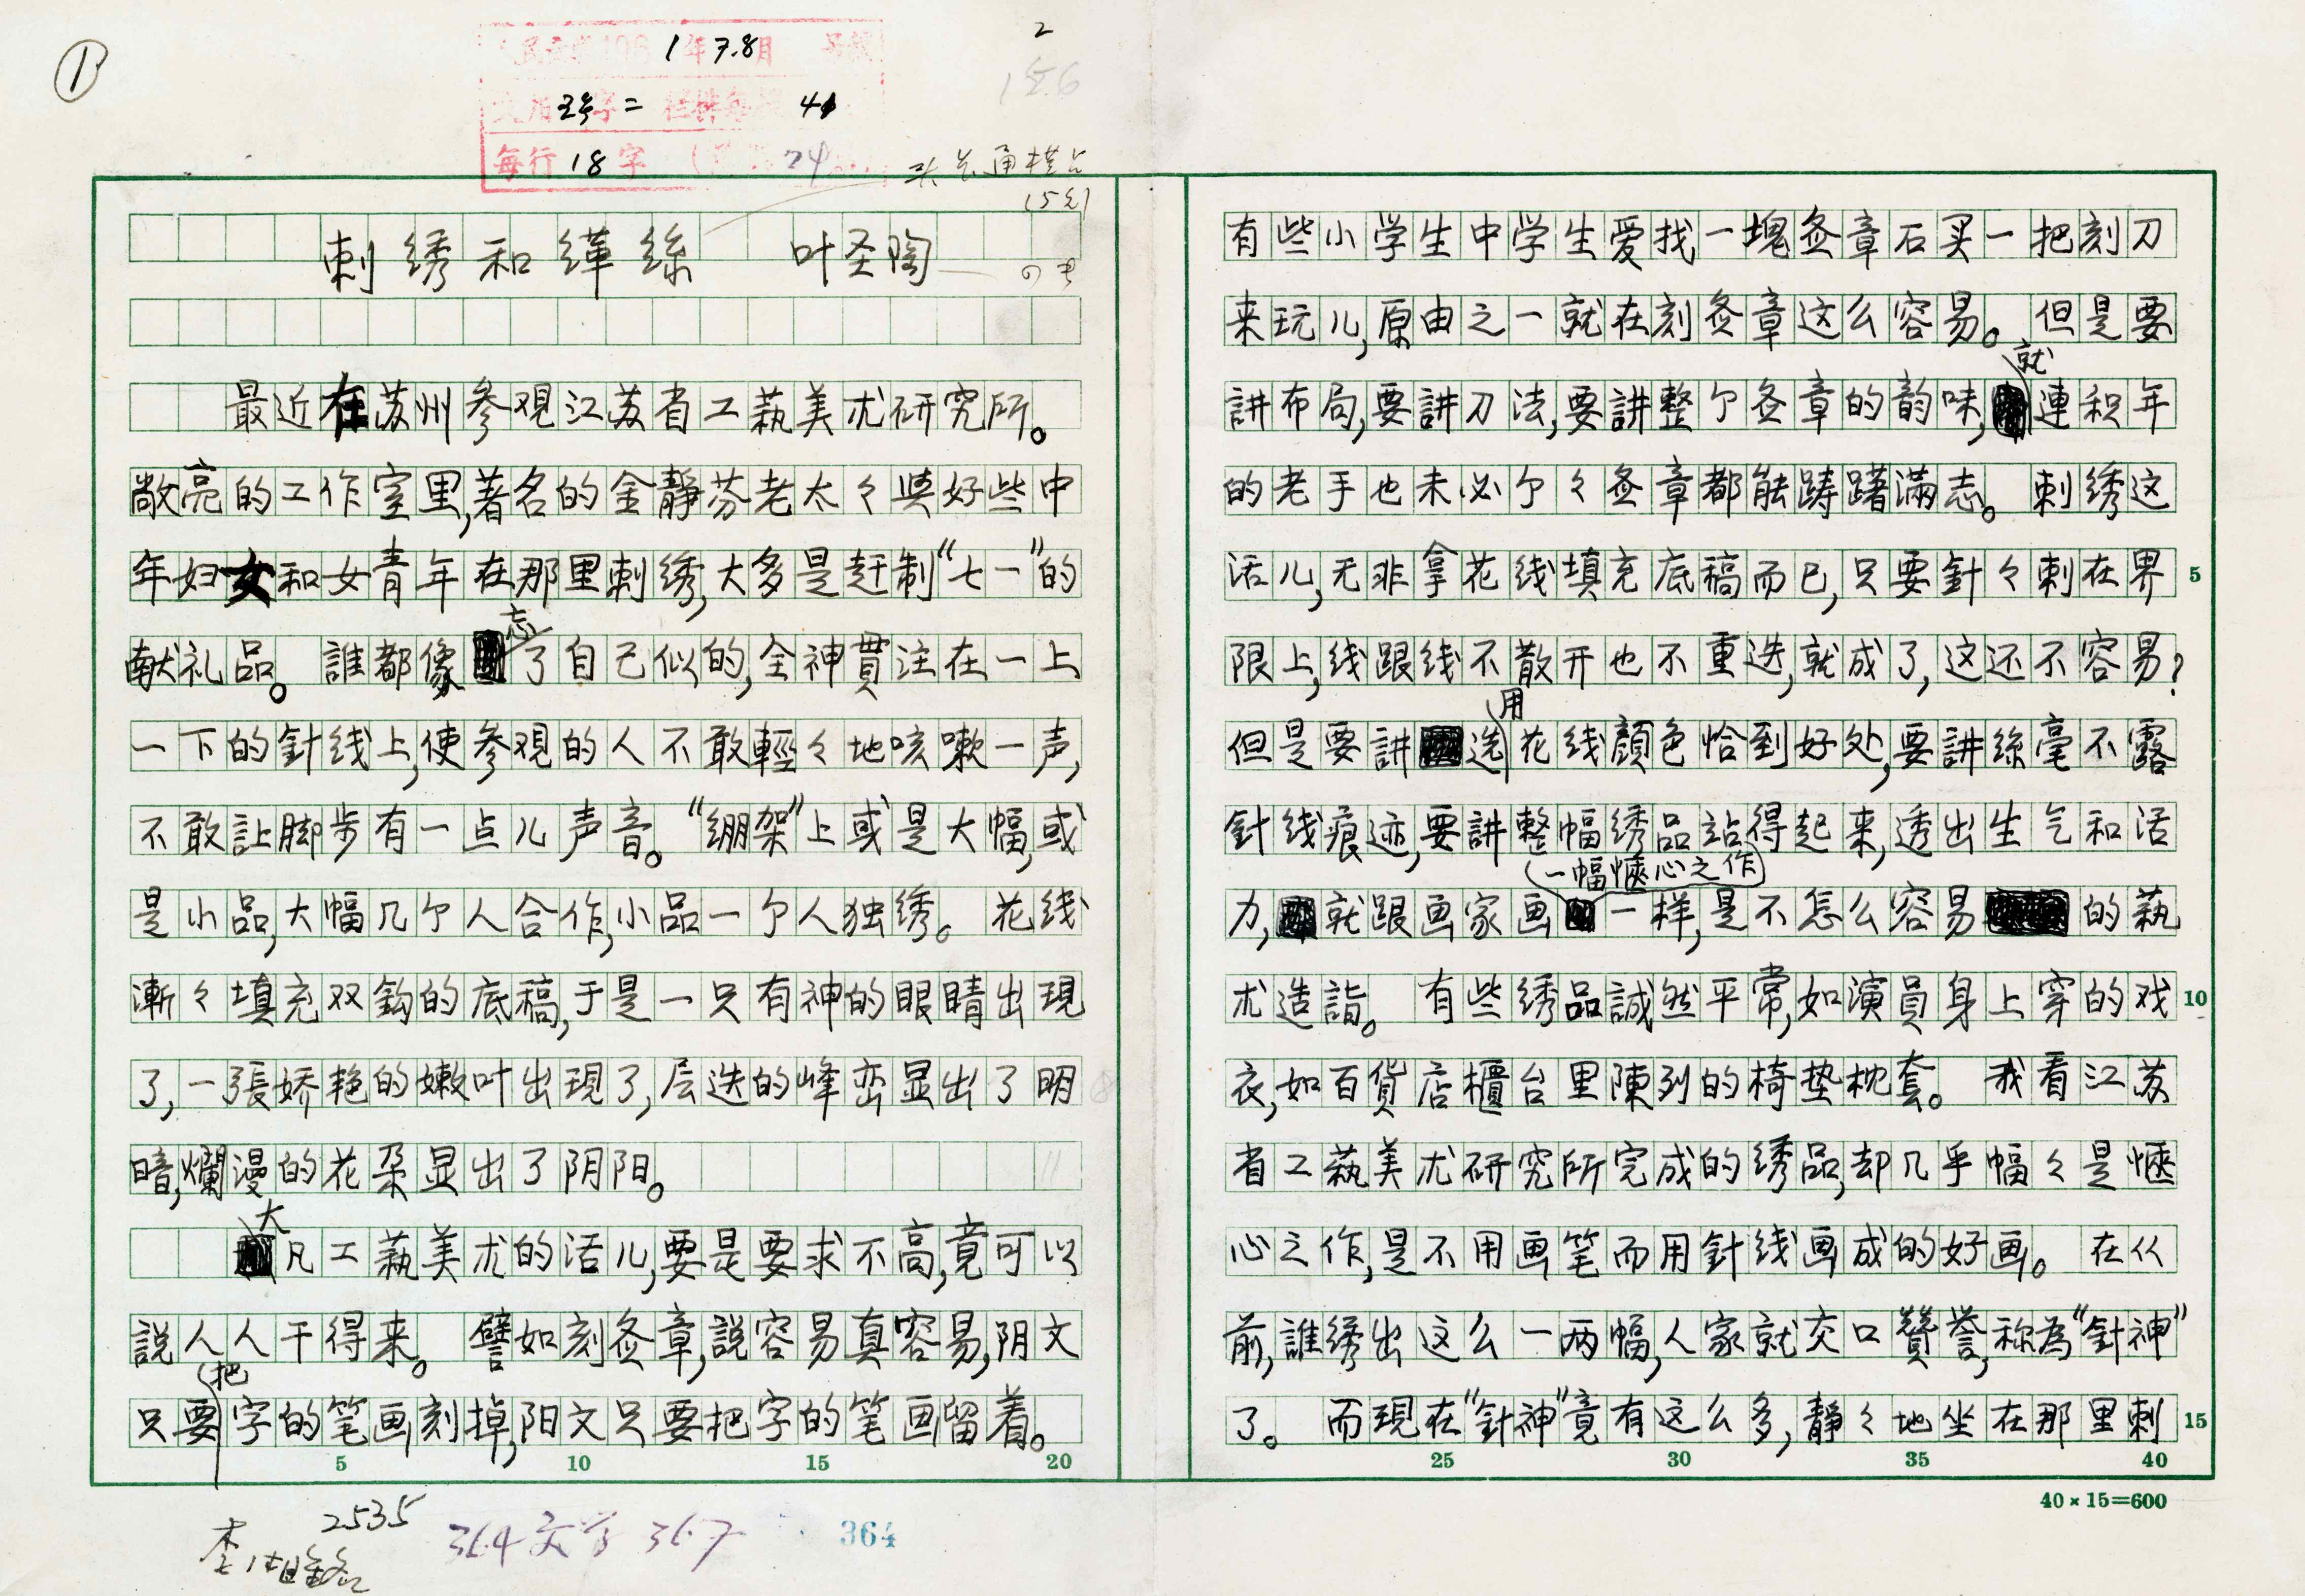 ①
1年7.8月
2
5号字=
41
每行18字
24
(5行)
刺绣和緙絲 叶圣陶
最近在苏州参观江苏省工蓺美朮研究所。
敞亮的工作室里,著名的金静芬老太々與好些中
年妇女和女青年在那里刺绣,大多是赶制“七一”的
献礼品。誰都像忘了自己似的,全神貫注在一上
一下的針线上,使参观的人不敢輕々地咳嗽一声,
不敢讓脚步有一点儿声音。“绷架”上或是大幅,或
是小品,大幅几个人合作,小品一个人独绣。花线
漸々填充双鈎的底稿,于是一只有神的眼睛出現
了,一張娇艳的嫩叶出現了,层迭的峰峦显出了明
暗,爛漫的花朵显出了阴阳。
大凡工蓺美朮的活儿,要是要求不高,竟可以
說人人干得来。譬如刻图章,說容易真容易,阴文
只要把字的笔画刻掉,阳文只要把字的笔画留着。
有些小学生中学生爱找一塊图章石买一把刻刀
来玩儿,原由之一就在刻图章这么容易。但是要
講布局,要講刀法,要講整个图章的韵味,就連积年
的老手也未必个々图章都能踌躇滿志。刺绣这
活儿,无非拿花线填充底稿而已,只要針々刺在界
限上,线跟线不散开也不重迭,就成了,这还不容易?
但是要講选用花线顏色恰到好处,要講絲毫不露
針线痕迹,要講整幅绣品站得起来,透出生气和活
力,就跟画家画一幅愜心之作一样,是不怎么容易的蓺
朮造詣。有些绣品誠然平常,如演員身上穿的戏
衣,如百貨店櫃台里陳列的椅垫枕套。我看江苏
省工蓺美朮研究所完成的绣品,却几乎幅々是愜
心之作,是不用画笔而用針线画成的好画。在从
前,誰绣出这么一两幅,人家就交口贊誉,称為“針神”
了。而現在“針神”竟有这么多,静々地坐在那里刺
5
10
15
5 10 15 20 25 30 35 40
40×15=600
2535
364 文学 367
364